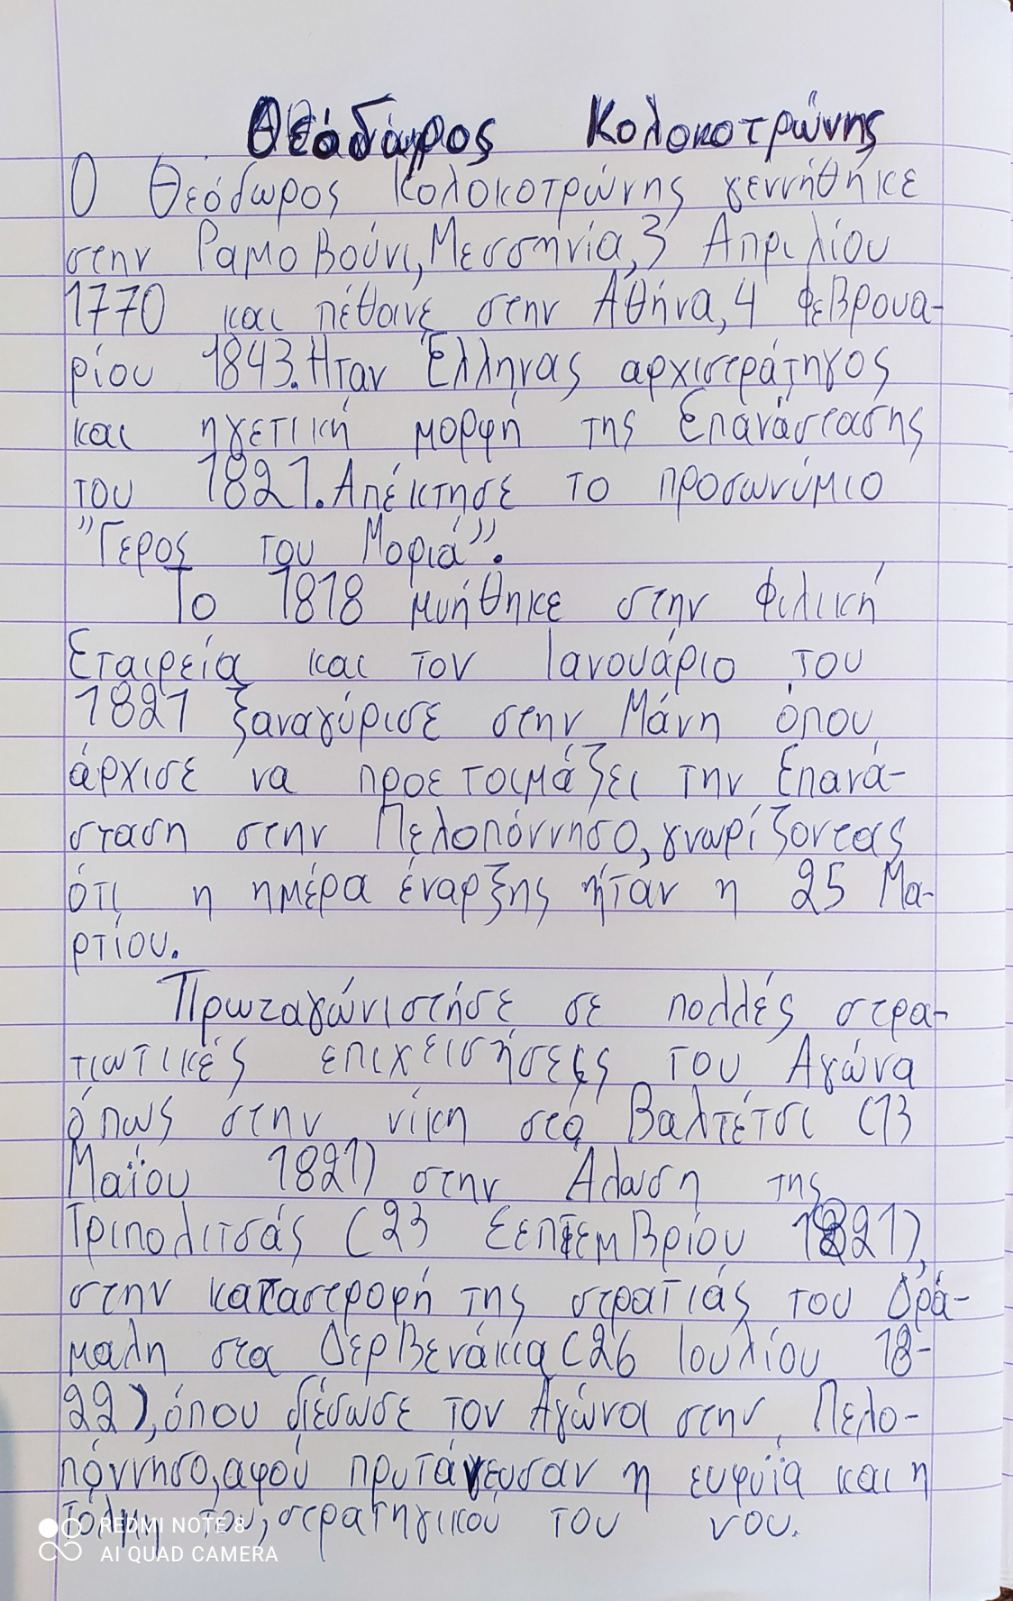 Θεόδωρος Κολοκοτρώνης
Ο Θεόδωρος Κολοκοτρώνης γεννήθηκε
στην Ραμοβούνι, Μεσσηνία, 3 Απριλίου
1770 και πέθανε στην Αθήνα, 4 Φεβρουα-
ρίου 1843. Ήταν Έλληνας αρχιστράτηγος
και ηγετική μορφή της Επανάστασης
του 1821. Απέκτησε το προσωνύμιο
"Γερος του Μοριά".
Το 1818 μυήθηκε στην Φιλική
Εταιρεία και τον Ιανουάριο του
1821 ξαναγύρισε στην Μάνη όπου
άρχισε να προετοιμάζει την Επανά-
σταση στην Πελοπόννησο, γνωρίζοντας
ότι η ημέρα έναρξης ήταν η 25 Μα-
ρτίου.
Πρωταγώνιστήσε σε πολλές στρα-
τιωτικές επιχεισήσεις του Αγώνα
όπως στην νίκη στο Βαλτέτσι (13
Μαΐου 1821) στην Άλωση της
Τριπολιτσάς (23 Σεπτεμβρίου 1821),
στην καταστροφή της στρατιάς του Δρά-
μαλη στα Δερβενάκια (26 Ιουλίου 18-
22), όπου διέσωσε τον Αγώνα στην Πελο-
πόννησο, αφού πρυτάνευσαν η ευφυΐα και η
τόλμη του, στρατηγικού του νου.
REDMI NOTE 8
AI QUAD CAMERA